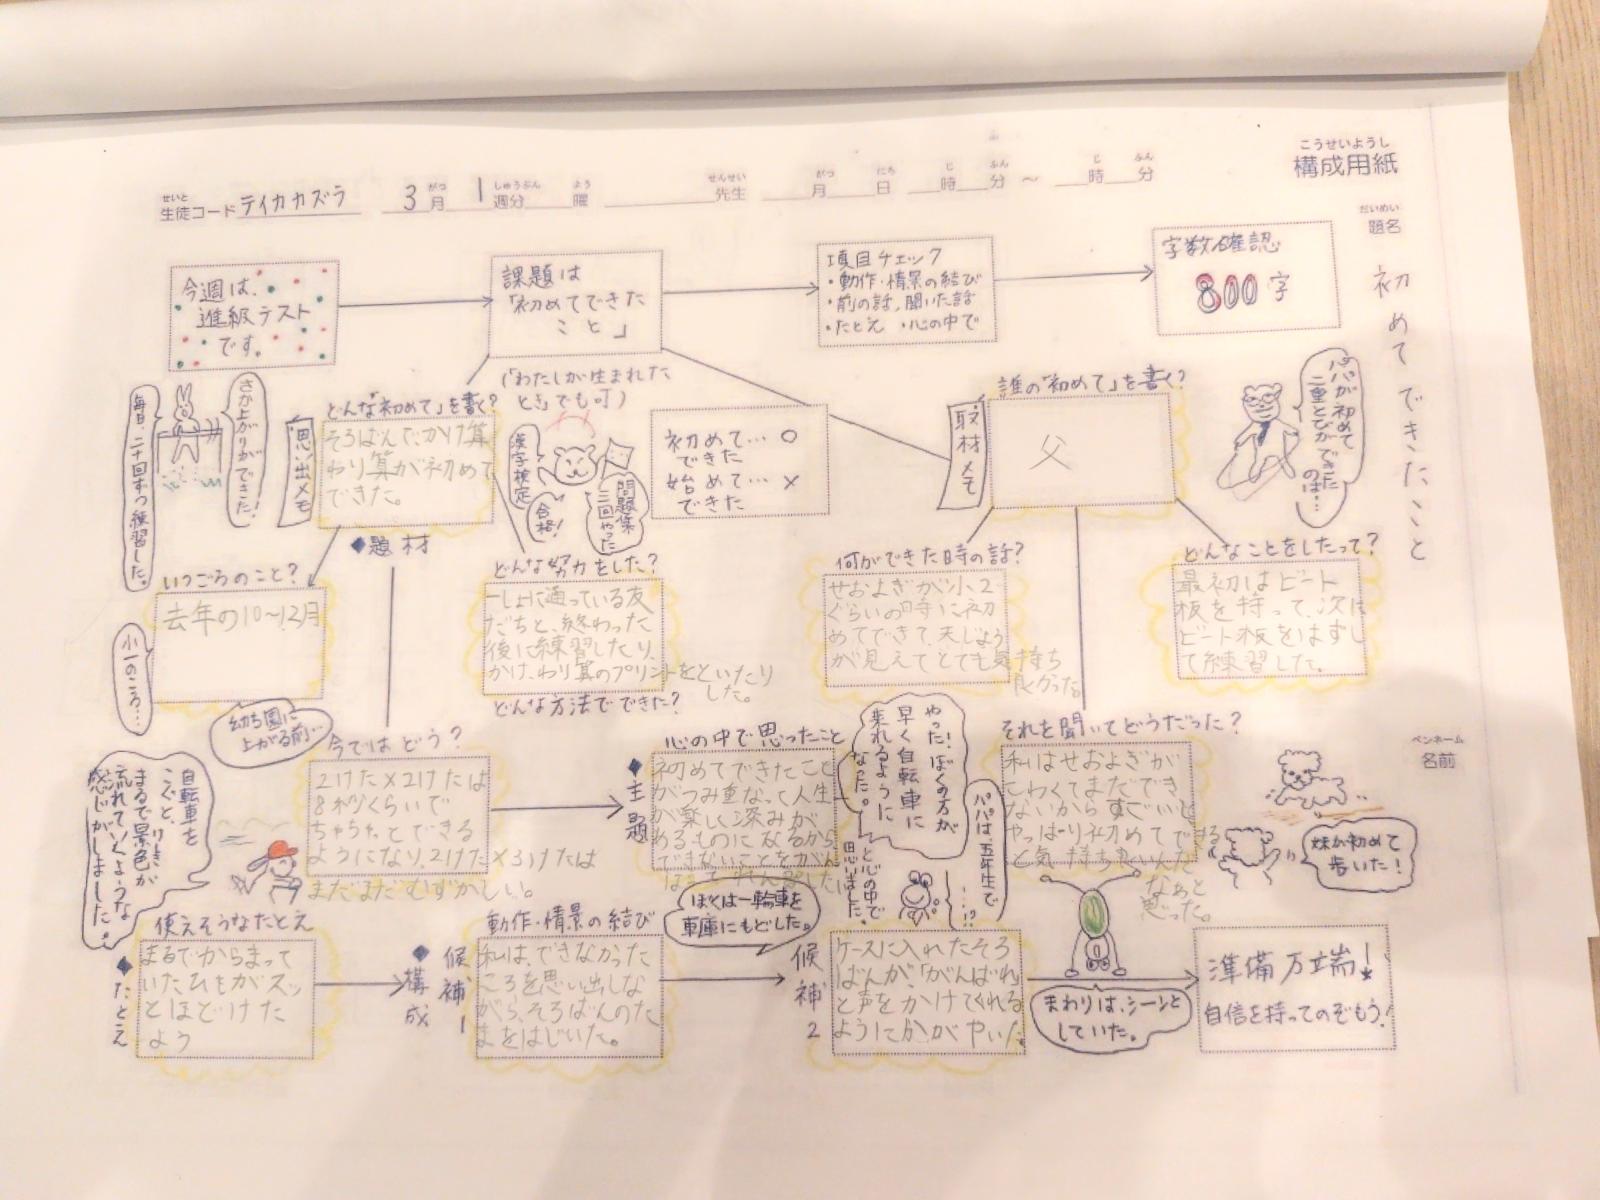 こうせいようし
構成用紙
せいと
生徒コード テイカカズラ
3月 1週分 曜
がつ しゅうぶん よう
せんせい
先生
がつ にち じ ふん じ ふん
月 日 時 分 ～ 時 分
だいめい
題名
初めてできたこと
ペンネーム
名前
今週は、
進級テスト
です。
課題は
「初めてできた
こと」
項目チェック
・動作・情景の結び
・前の話、聞いた話
・たとえ ・心の中で
字数確認
800字
(「わたしが生まれた
とき」でも可)
毎日、二十回ずつ練習した。
さか上がりができた!
思い出メモ
どんな「初めて」を書く?
そろばんで、かけ算
わり算が初めて
できた。
◆題材
漢字検定
合格!
問題集
三回やった
初めて… ○
できた
始めて… ×
できた
取材メモ
誰の「初めて」を書く?
父
パパが初めて
二重とびができた
のは…
いつごろのこと?
去年の10〜12月
小一のころ…
幼ち園に
上がる前…
どんな努力をした?
一しょに通っている友
だちと、終わった
後に練習したり、
かけ、わり算のプリントをといたり
した。
どんな方法でできた?
何ができた時の話?
せおよぎが小2
ぐらいの時に初
めてできて、天じょう
が見えてとても気持ち
良かった。
どんなことをしたって?
最初はビート
板を持って、次は
ビート板をはずし
て練習した。
今ではどう?
2けた×2けたは
8秒くらいで
ちゃちゃとできる
ようになり、2けた×3けたは
まだまだむずかしい。
◆主題
心の中で思ったこと
初めてできたこと
がつみ重なって人生
が楽しく深みが
あるものになるから
できないことをがん
ばって
やった!ぼくの方が
早く自転車に
乗れるように
なった。
と心の中で
思いました。
パパは五年生で
……!?
それを聞いてどうだった?
私はせおよぎが
こわくてまだでき
ないからすごいと
やっぱり初めてできる
と気持ち良いんだ
なあと
思った。
妹が初めて
歩いた!
自転車を
こぐと、
まるで景色が
流れていくような
感じがしました。
◆たとえ
使えそうなたとえ
まるでからまって
いたひもがスッ
とほどけた
よう
◆構成
候補1
動作・情景の結び
私は、できなかった
ころを思い出しな
がら、そろばんのた
まをはじいた。
ぼくは一輪車を
車庫にもどした。
候補2
ケースに入れたそろ
ばんが、「がんばれ」
と声をかけてくれる
ようにかがやいた。
まわりは、シーンと
していた。
準備万端!
自信を持ってのぞもう!